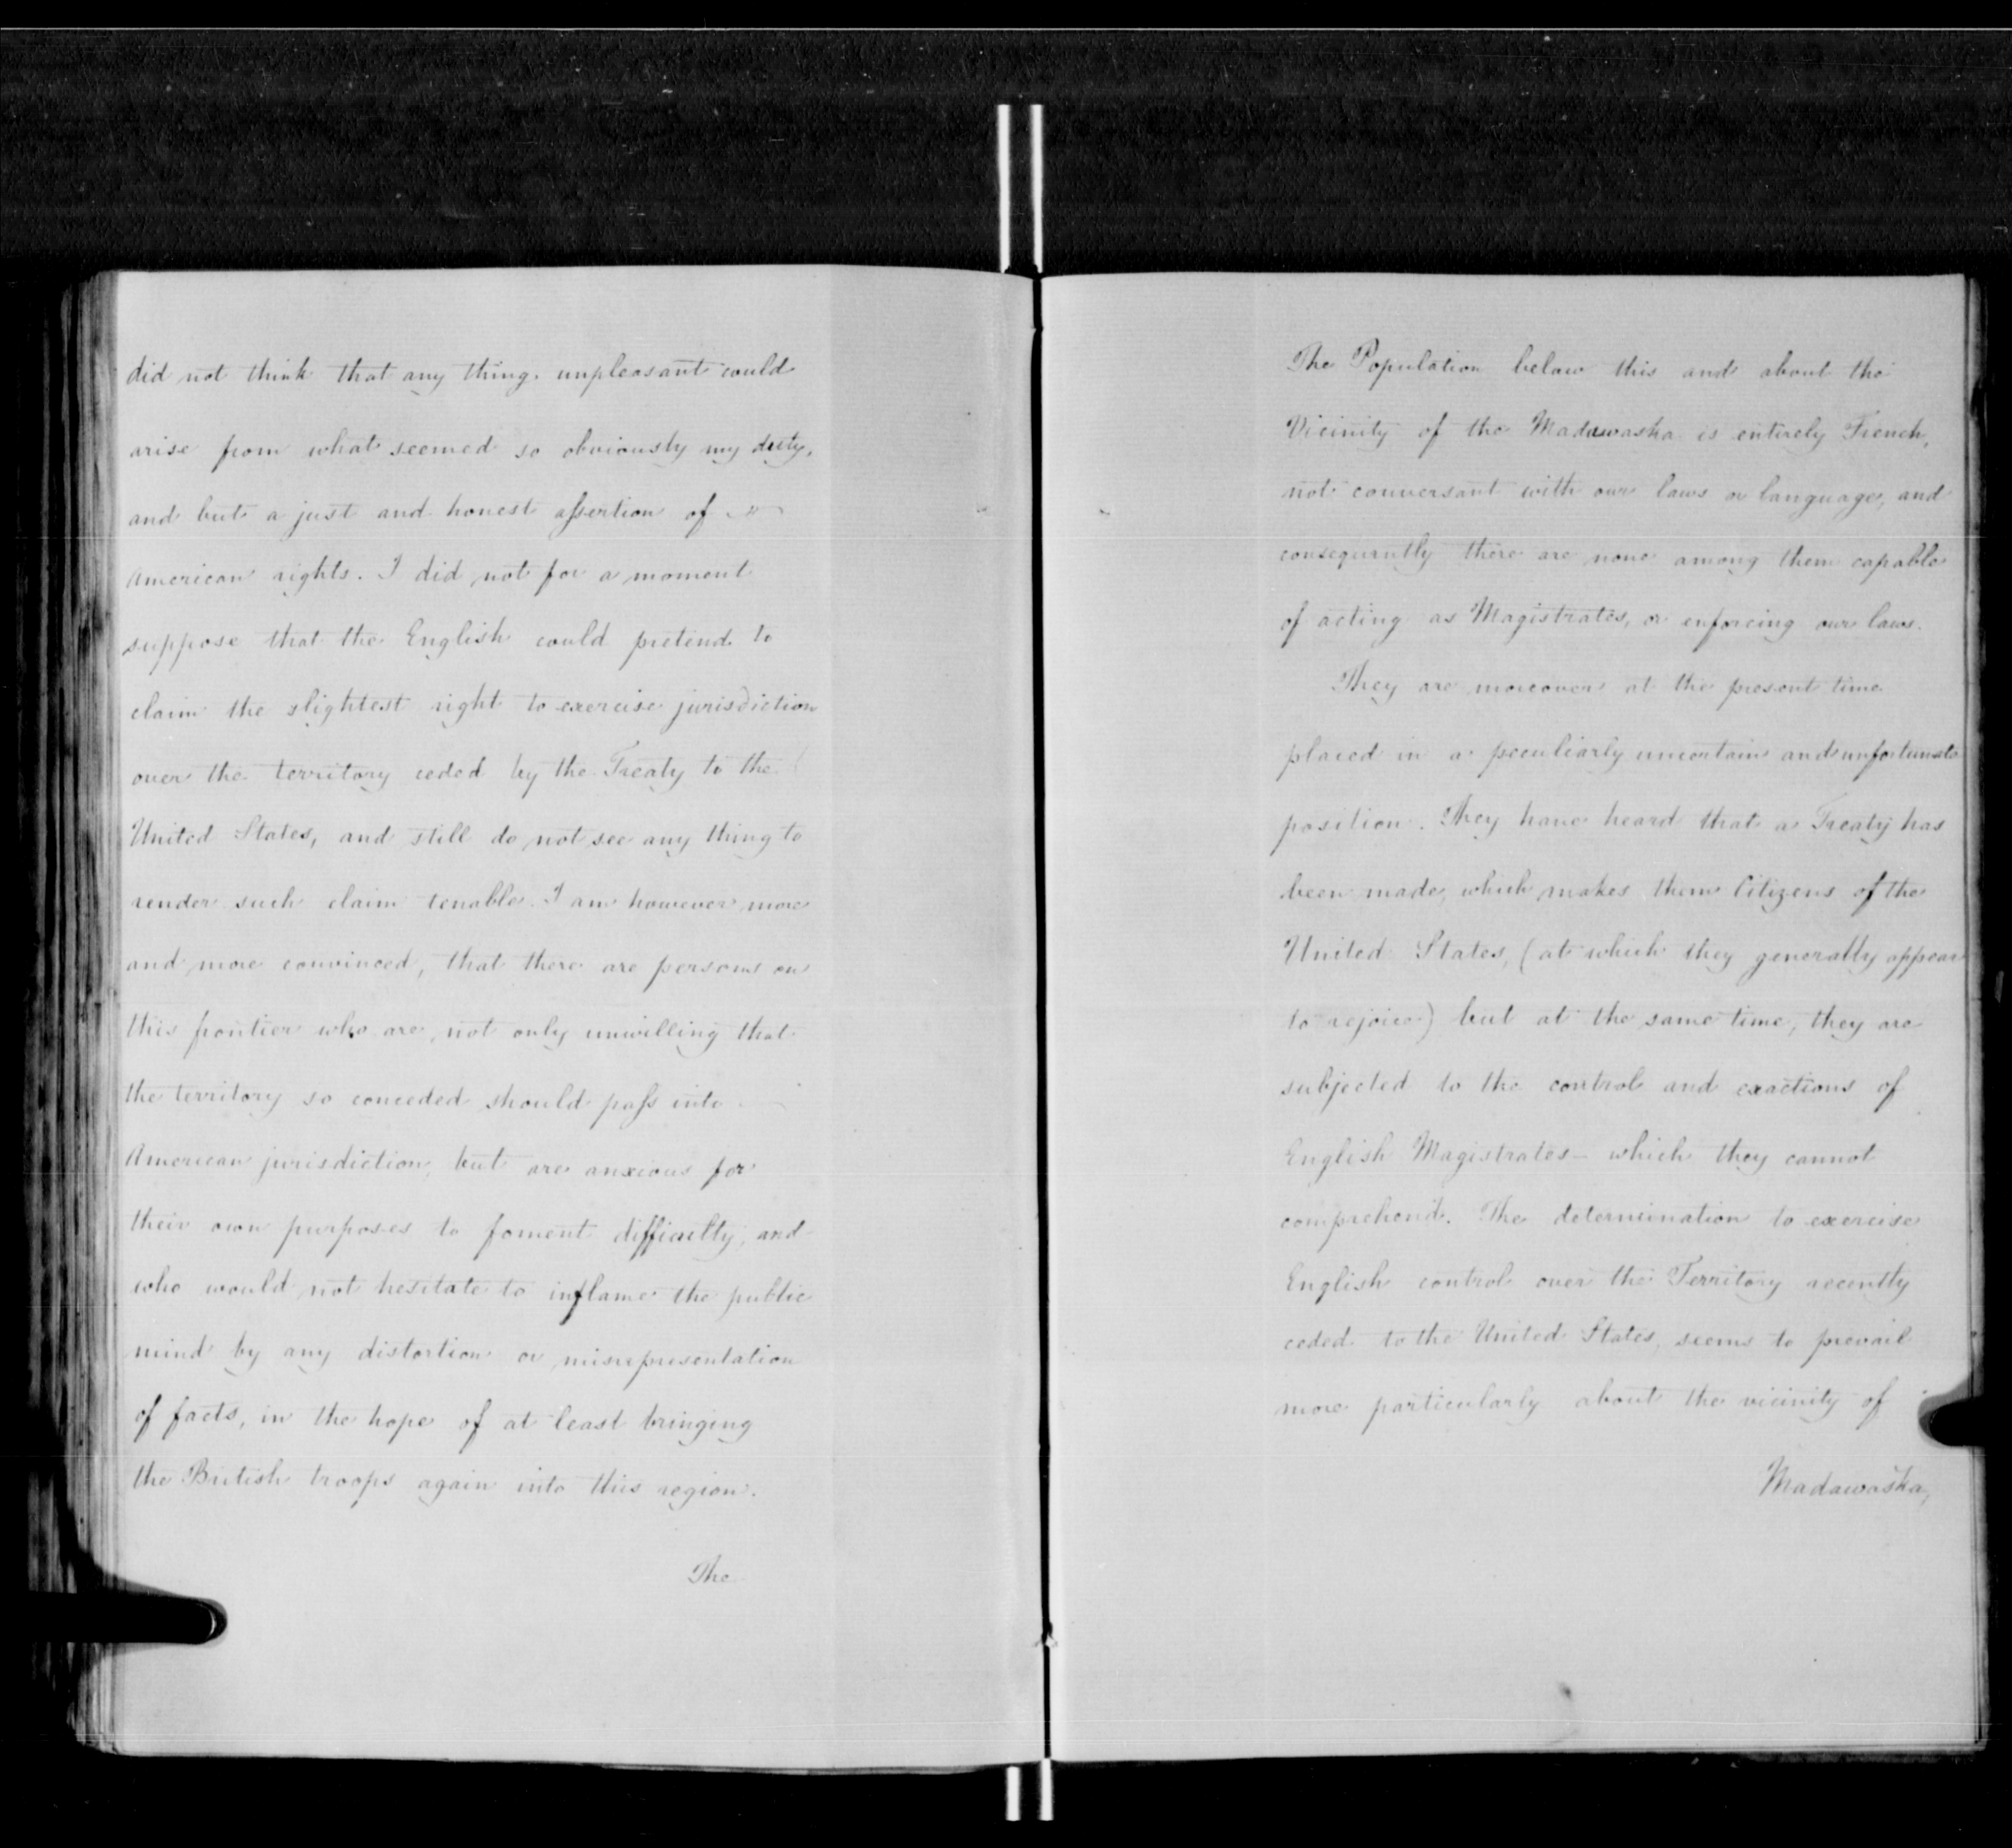 did not think that any thing. unpleasant could
arise from what seemed so obviously my duty,
and but a just and honest assertion of
American rights. I did not for a moment
suppose that the English could pretend to
claim the slightest right to exercise jurisdiction
over the territory ceded by the Treaty to the
United States, and still do not see any thing to
render such claim tenable. I am however more
and more convinced, that there are persons on
this frontier who are, not only unwilling that
the territory so conceded should pass into
American jurisdiction, but are anxious for
their own purposes to foment difficulty, and
who would not hesitate to inflame the public
mind by any distortion or misrepresentation
of facts, in the hope of at least bringing
the British troops again into this region.
The
The Population below this and about the
Vicinity of the Madawaska is entirely French,
not conversant with our laws or language, and
consequently there are none among them capable
of acting as Magistrates, or enforcing our laws.
They are moreover at the present time
placed in a peculiarly uncertain and unfortunate
position. They have heard that a Treaty has
been made, which makes them Citizens of the
United States, (at which they generally appear
to rejoice) but at the same time, they are
subjected to the control and exactions of
English Magistrates - which they cannot
comprehend. The determination to exercise
English control over the Territory recently
ceded to the United States, seems to prevail
more particularly about the vicinity of
Madawaska,